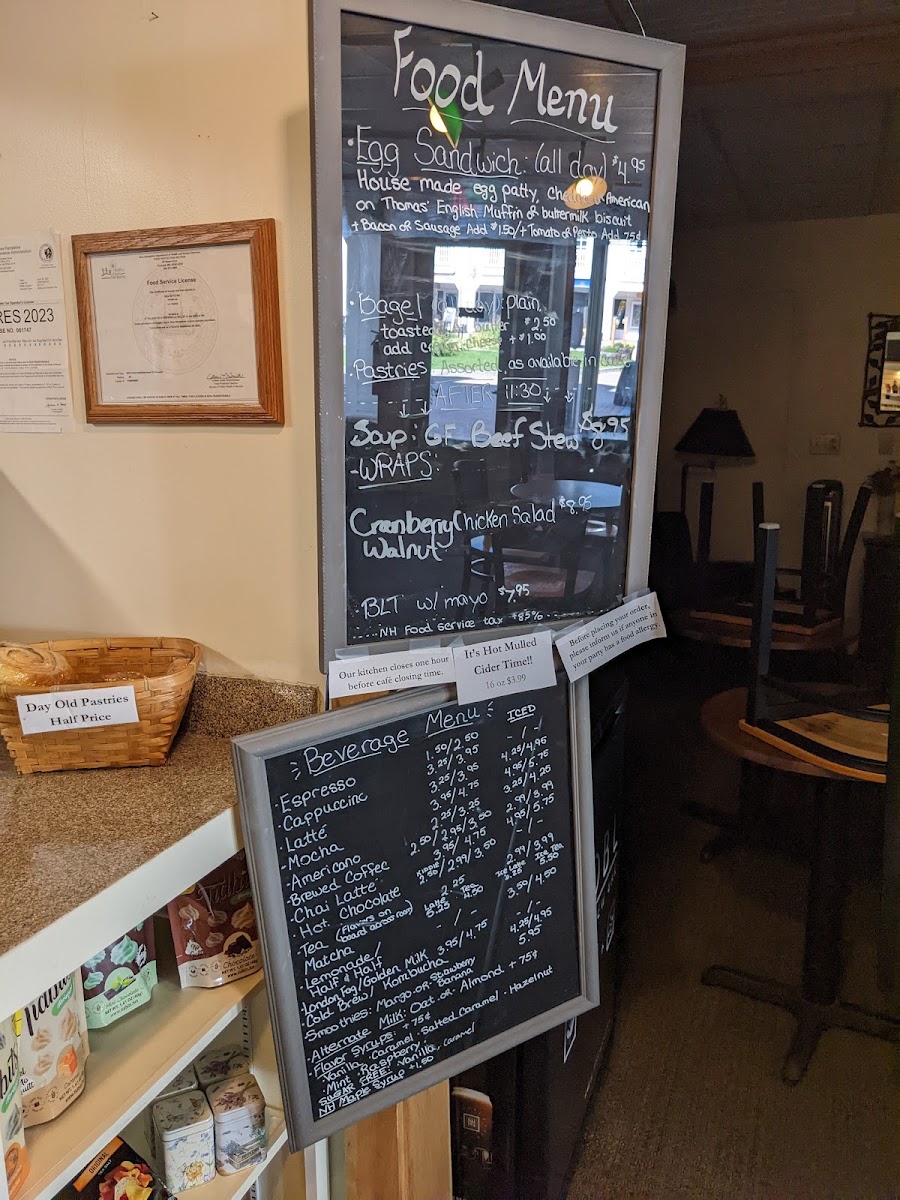 Food Menu
· Egg Sandwich: (all day) $4.95
House made egg patty, American
on Thomas' English Muffin or buttermilk biscuit
+ Bacon or Sausage Add $1.50/+ Tomato or Pesto Add 75¢
· Bagel plain,
toasted $2.50
add + $1.00
· Pastries Assorted, as available in case
↓ ↓ AFTER 11:30 ↓ ↓
Soup: GF Beef Stew $8.95
- WRAPS:
Cranberry Chicken Salad $8.95
Walnut
· BLT w/ mayo $7.95
NH Food Service tax + 85%
Our kitchen closes one hour
before café closing time.
It's Hot Mulled
Cider Time!!
16 oz $3.99
Before placing your order,
please inform us if anyone in
your party has a food allergy.
Beverage Menu ICED
· Espresso 1.50/2.50 -/-
· Cappuccino 3.25/3.95 4.25/4.95
· Latté 3.25/3.95 4.95/5.75
· Mocha 3.95/4.75 3.25/4.25
· Americano 2.25/3.25 2.99/3.99
· Brewed Coffee 2.50/2.95/3.50 4.95/5.75
· Chai Latté 3.95/4.75 -/-
· Hot Chocolate 2.50/2.99/3.50 2.99/3.99
· Tea (Flavors on
board across room) 2.25
· Matcha Latte 5.25 Tea 4.50
· Lemonade/
Half & Half -/- 3.50/4.50
· London Fog/Golden Milk 3.95/4.75 -/-
· Cold Brew/ Kombucha 4.25/4.95
5.95
· Smoothies: Mango or Strawberry
Banana
· Alternate Milk: Oat or Almond + 75¢
· Flavor Syrups: + 75¢
Vanilla · Caramel · Salted Caramel · Hazelnut
· Mint · Raspberry
SUGAR FREE: Vanilla, Caramel
NH Maple Syrup + 1.50
Day Old Pastries
Half Price
Food Service License
RES 2023
SE NO. 061747
Chocolate
ORIGINAL